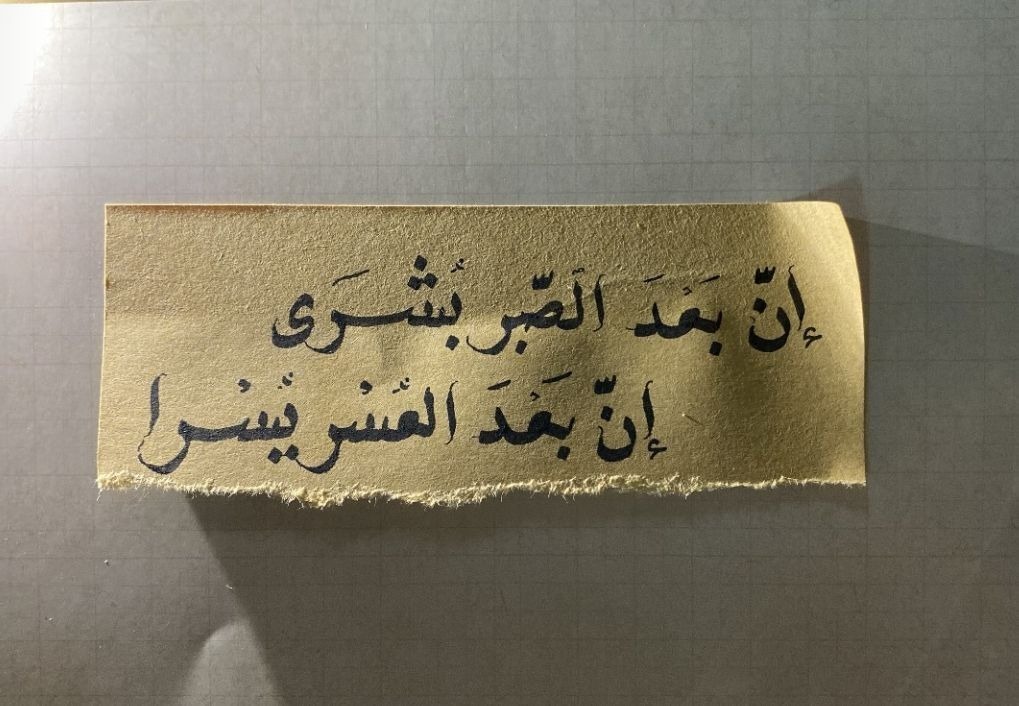 إنّ بَعْدَ الصّبر بُشْرَى
إنّ بَعْدَ العُسْر يُسْرا